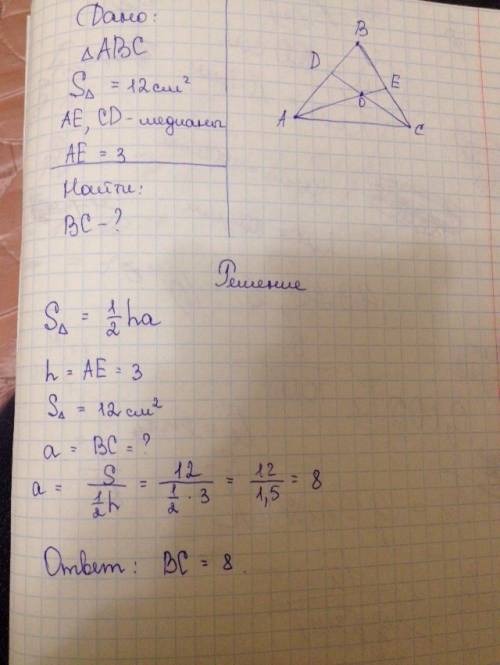 Дано:
△ABC
S△ = 12 см²
AE, CD - медианы
AE = 3
Найти:
BC - ?
B
D
E
O
A
C
Решение
S△ = 1/2 ha
h = AE = 3
S△ = 12 см²
a = BC = ?
a = S / (1/2 h) = 12 / (1/2 · 3) = 12 / 1,5 = 8
Ответ: BC = 8.